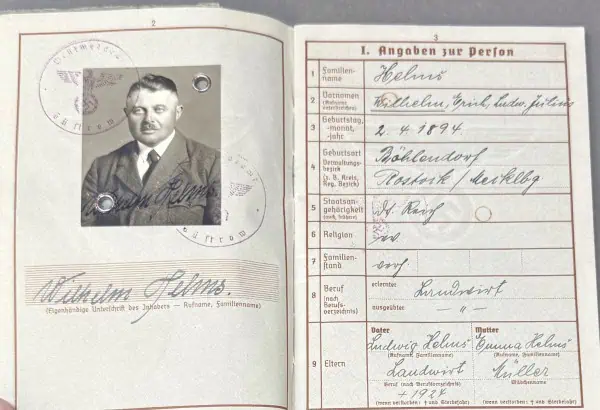 2
Wilhelm Helms.
(Eigenhändige Unterschrift des Inhabers — Rufname, Familienname)
3
I. Angaben zur Person
1 Familienname Helms
2 Vornamen (Rufname unterstreichen) Wilhelm, Erich, Ludw. Julius
3 Geburtstag, -monat, -jahr 2. 4. 1894.
4 Geburtsort Böhlendorf
Verwaltungsbezirk (z. B. Kreis, Reg. Bezirk) Rostock / Mecklbg
5 Staatsangehörigkeit (auch frühere) Dt. Reich
6 Religion ev.
7 Familienstand verh.
8 Beruf (nach Berufsverzeichnis) erlernter Landwirt
ausgeübter — " —
9 Eltern
Vater Mutter
Ludwig Helms Helms
(Rufname, Familienname) (Rufname, Familienname)
Landwirt Müller
Beruf (nach Berufsverzeichnis) Mädchenname
+ 1924
(wenn verstorben: † und Sterbejahr) (wenn verstorben: † und Sterbejahr)